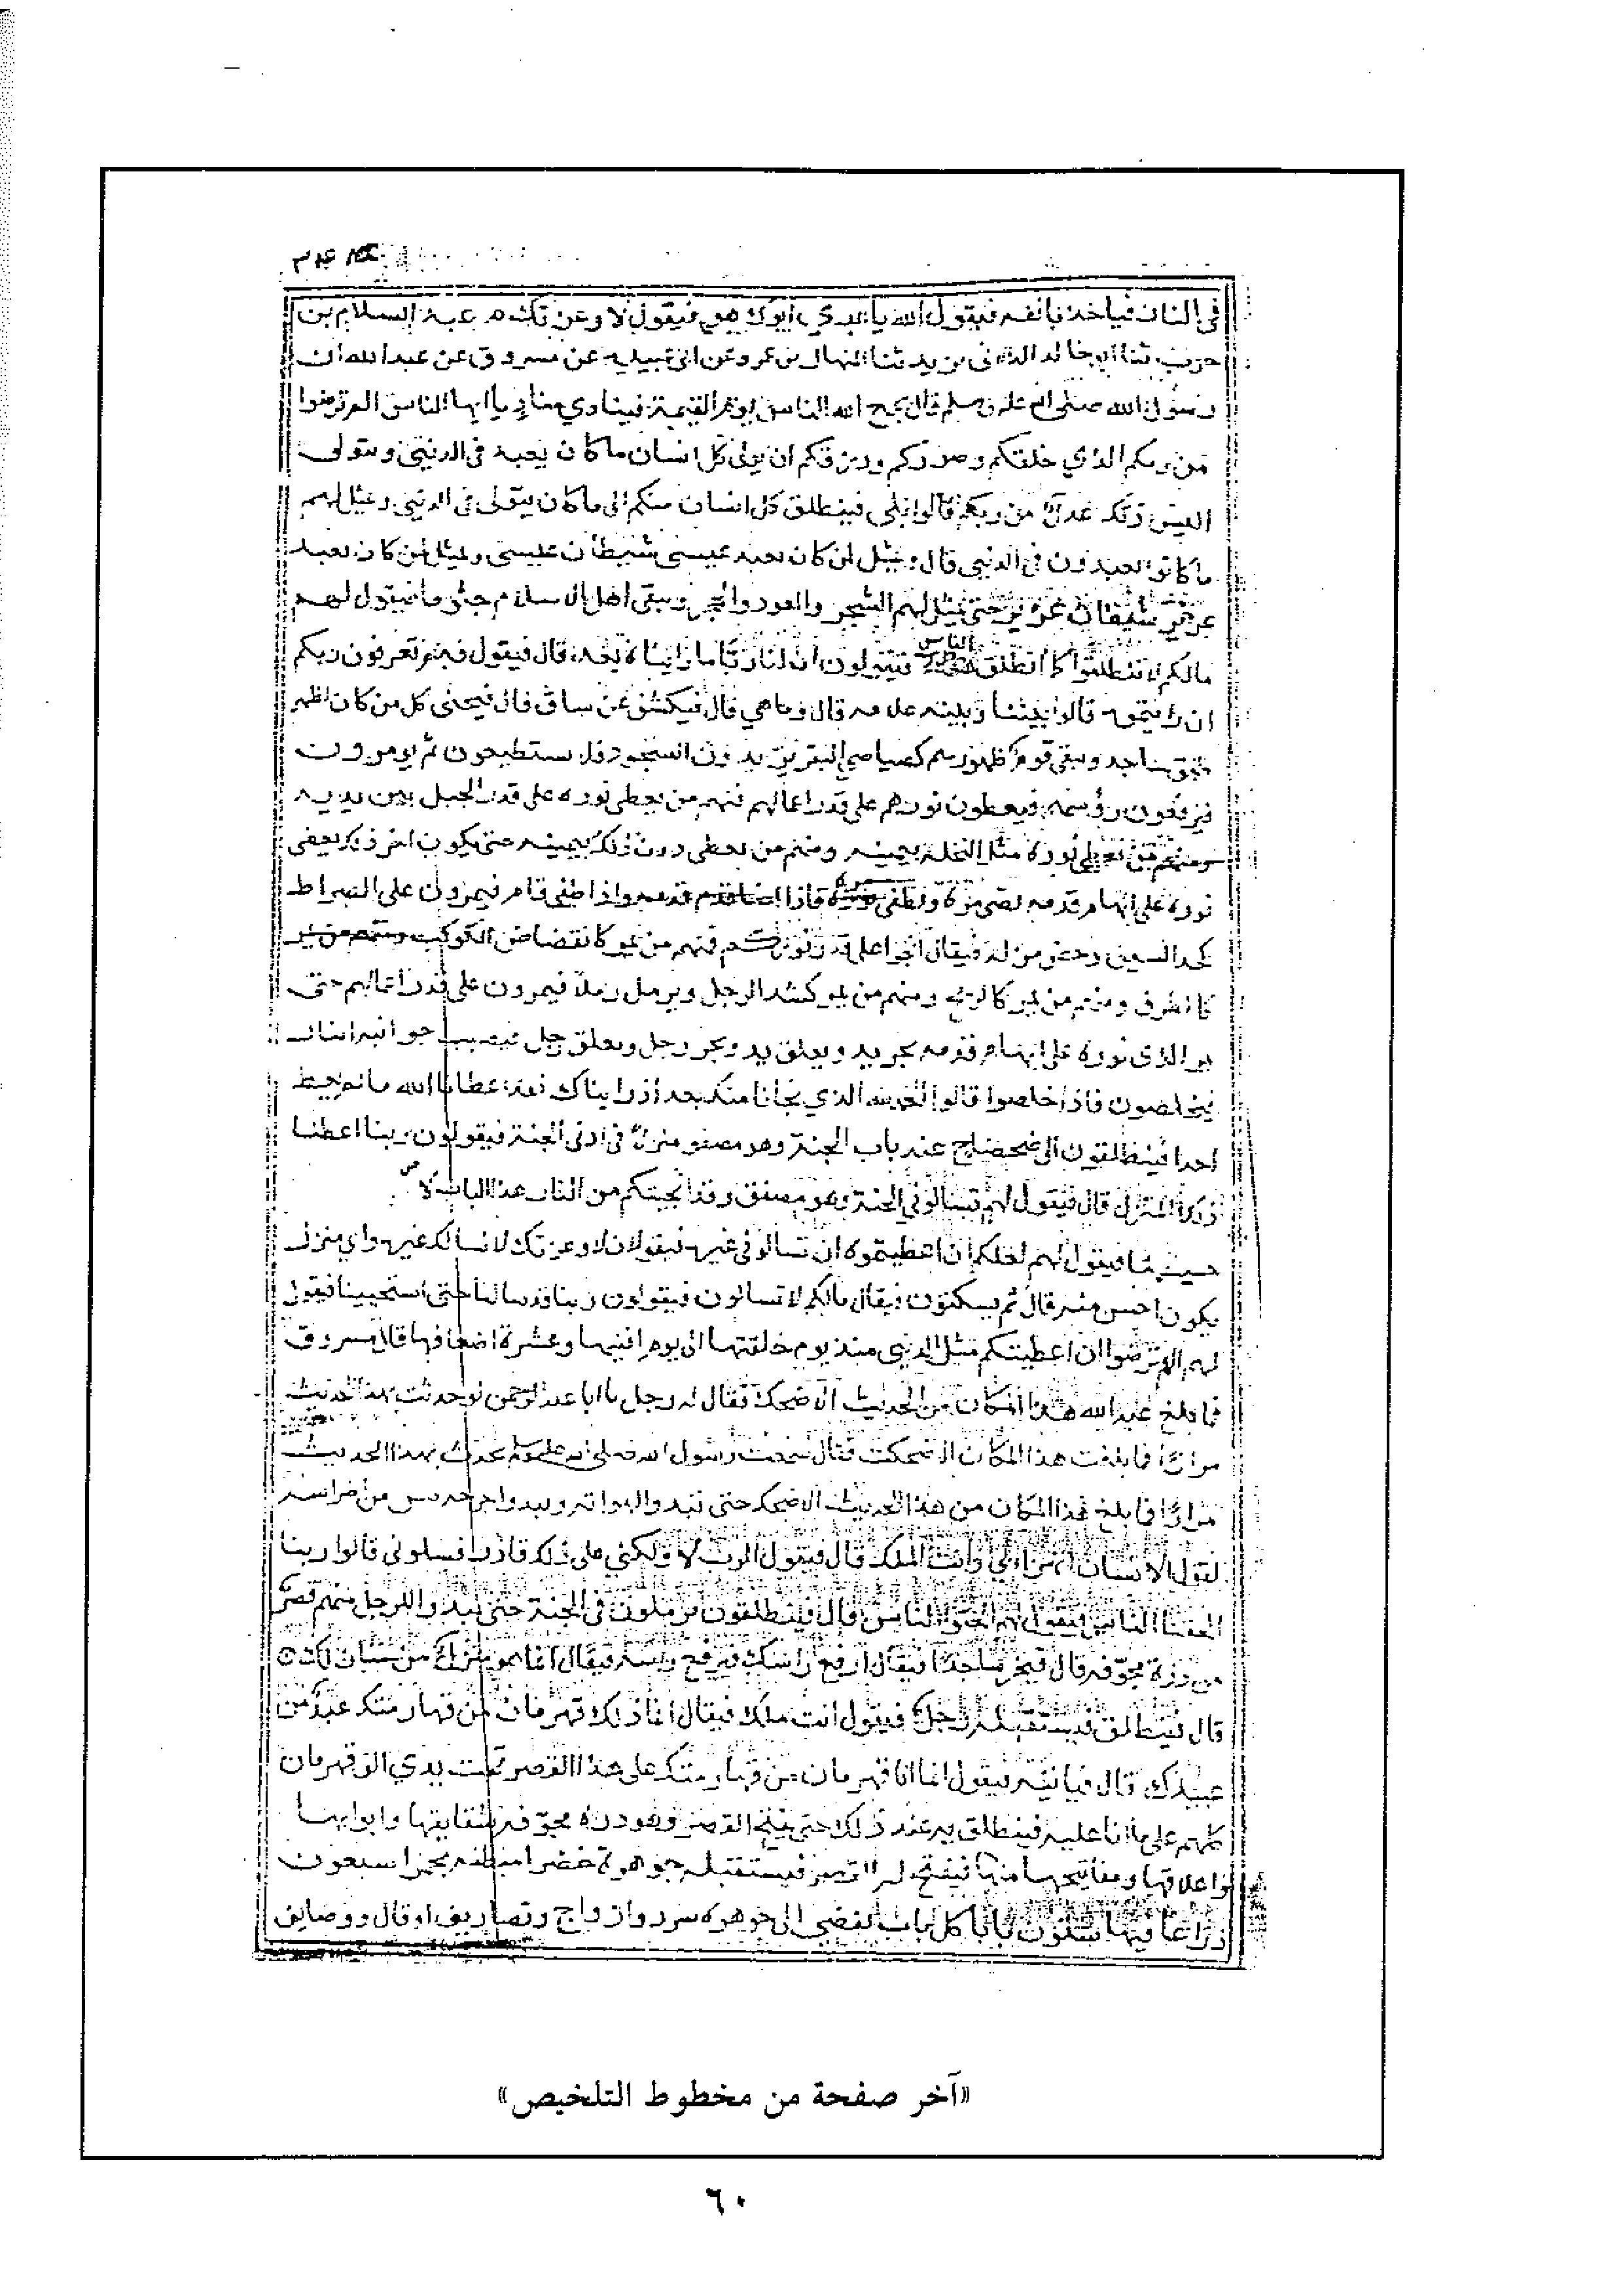 في النار فياخذ بانفه فيقول الله يا عبدي ابوك هي فيقول لا وعزتك ه عبد السلام بن
حرب ثنا ابو خالد الدالاني بن يزيد ثنا المنهال بن عمرو عن ابي عبيدة عن مسروق عن عبد الله ان
رسول الله صلى الله عليه وسلم قال يجمع الله الناس يوم القيمة فينادي مناد يا ايها الناس الم ترضوا
من ربكم الذي خلقكم وصوركم ورزقكم ان يولى كل انسان ما كان يعبد في الدنيى ويتولى
اليس ذلك عدل من ربكم قالوا بلى فينطلق كل انسان منكم الى ما كان يتولى في الدنيى ويمثل لهم
ما كانوا يعبدون في الدنيى قال ويمثل لمن كان يعبد عيسى شيطان عيسى ويمثل لمن كان يعبد
عزير شيطان عزير حتى يمثل لهم الشجر والعود والحجر ويبقى اهل الاسلام جثوما فيقول لهم
مالكم لا تنطلقوا كما انطلق الناس فيقولون ان لنا ربا ما راينا ه بعد قال فيقول فبم تعرفون ربكم
ان رايتموه قالوا بيننا وبينه علامه قال وما هي قال فيكشف عن ساق قال فيحنى كل من كان لظهر
طبق ساجد ويبقى قوم ظهورهم كصياصي البقر يريدون السجود فلا يستطيعون ثم يومرون
فيرفعون روسهم فيعطون نورهم على قدر اعمالهم فمنهم من يعطى نوره على قدر الجبل بين يديه
ومنهم من يعطى نوره مثل النخلة بيمينه ومنهم من يعطى دون ذلك بيمينه حتى يكون اخر ذلك يعطى
نوره على ابهام قدمه يضي مرة ويطفى مرة فاذا اضا قدم قدمه واذا طفى قام فيمرون على الصراط
كحد السيف دحض مزلة فيقال انجوا على قدر نوركم فمنهم من يمر كانقضاض الكوكب ومنهم من يمر
كالطرف ومنهم من يمر كالريح ومنهم من يمر كشد الرجل ويرمل رملا فيمرون على قدر اعمالهم حتى
يمر الذي نوره على ابهام قدمه يجر يد ويعلق يد ويجر رجل ويعلق رجل فتصيب جوانبه النار
فيخلصون فاذا خلصوا قالوا الحمد لله الذي نجانا منك بعد اذ رايناك لقد اعطانا الله ما لم يعط
احدا فينطلقون الى ضحضاح عند باب الجنة وهو مصفق منزلا في ادنى الجنة فيقولون ربنا اعطنا
ذلك المنزل قال فيقول لهم تسالوني الجنة وهو مصفق وقد انجيتكم من النار هذا الباب لا
فيقول لهم لعلكم ان اعطيتموه ان تسالوني غيره فيقولان لا وعزتك لا نسالك غيره واي منزل
يكون احسن منه قال ثم يسكتون فيقال مالكم لا تسالون فيقولون ربنا قد سالنا حتى استحيينا فيقول
لهم الم ترضوا ان اعطيتكم مثل الدنيى منذ يوم خلقتها الى يوم افنيها وعشرة اضعافها قال مسروق
فما بلغ عبد الله هذا المكان من الحديث الا ضحك فقال له رجل يا ابا عبد الرحمن لو حدثت بهذا الحديث
مرارا فما بلغت هذا المكان الا ضحكت فقال سمعت رسول الله صلى الله عليه وسلم يحدث بهذا الحديث
مرارا فما بلغ هذا المكان من هذا الحديث الا ضحك حتى تبدو لهواته ويبدو اخر ضرس من اضراسه
لقول الانسان اتهزا بي وانت الملك قال فيقول الرب لا ولكني على ذلك قادر فسلوني قالوا ربنا
الحقنا الناس فيقول لهم الحقوا الناس قال فينطلقون يرملون في الجنة حتى يبدوا للرجل منهم قصر
من درة مجوفه قال فيخر ساجدا فيقال ارفع راسك فيرفع راسه فيقال انما هو منزلك
قال فينطلق فيستقبله رجل فيقول انت ملك فيقال انما ذلك قهرمان من قهارمتك عبد من
عبيدك قال فياتيه فيقول انما انا قهرمان من قهارمتك على هذا القصر تحت يدي الف قهرمان
كلهم على ما انا عليه فينطلق به عند ذلك حتى يفتح القصر وهو دره مجوفه سقايفها وابوابها
واغلاقها ومفاتيحها منها فيفتح له القصر فيستقبله جوهرة خضرا مبطنه بحمرا سبعون
ذراعا فيها ستون بابا كل باب يفضي الى جوهره سرر وازواج وتصاريف او قال ووصايف
«آخر صفحة من مخطوط التلخيص»
٦٠